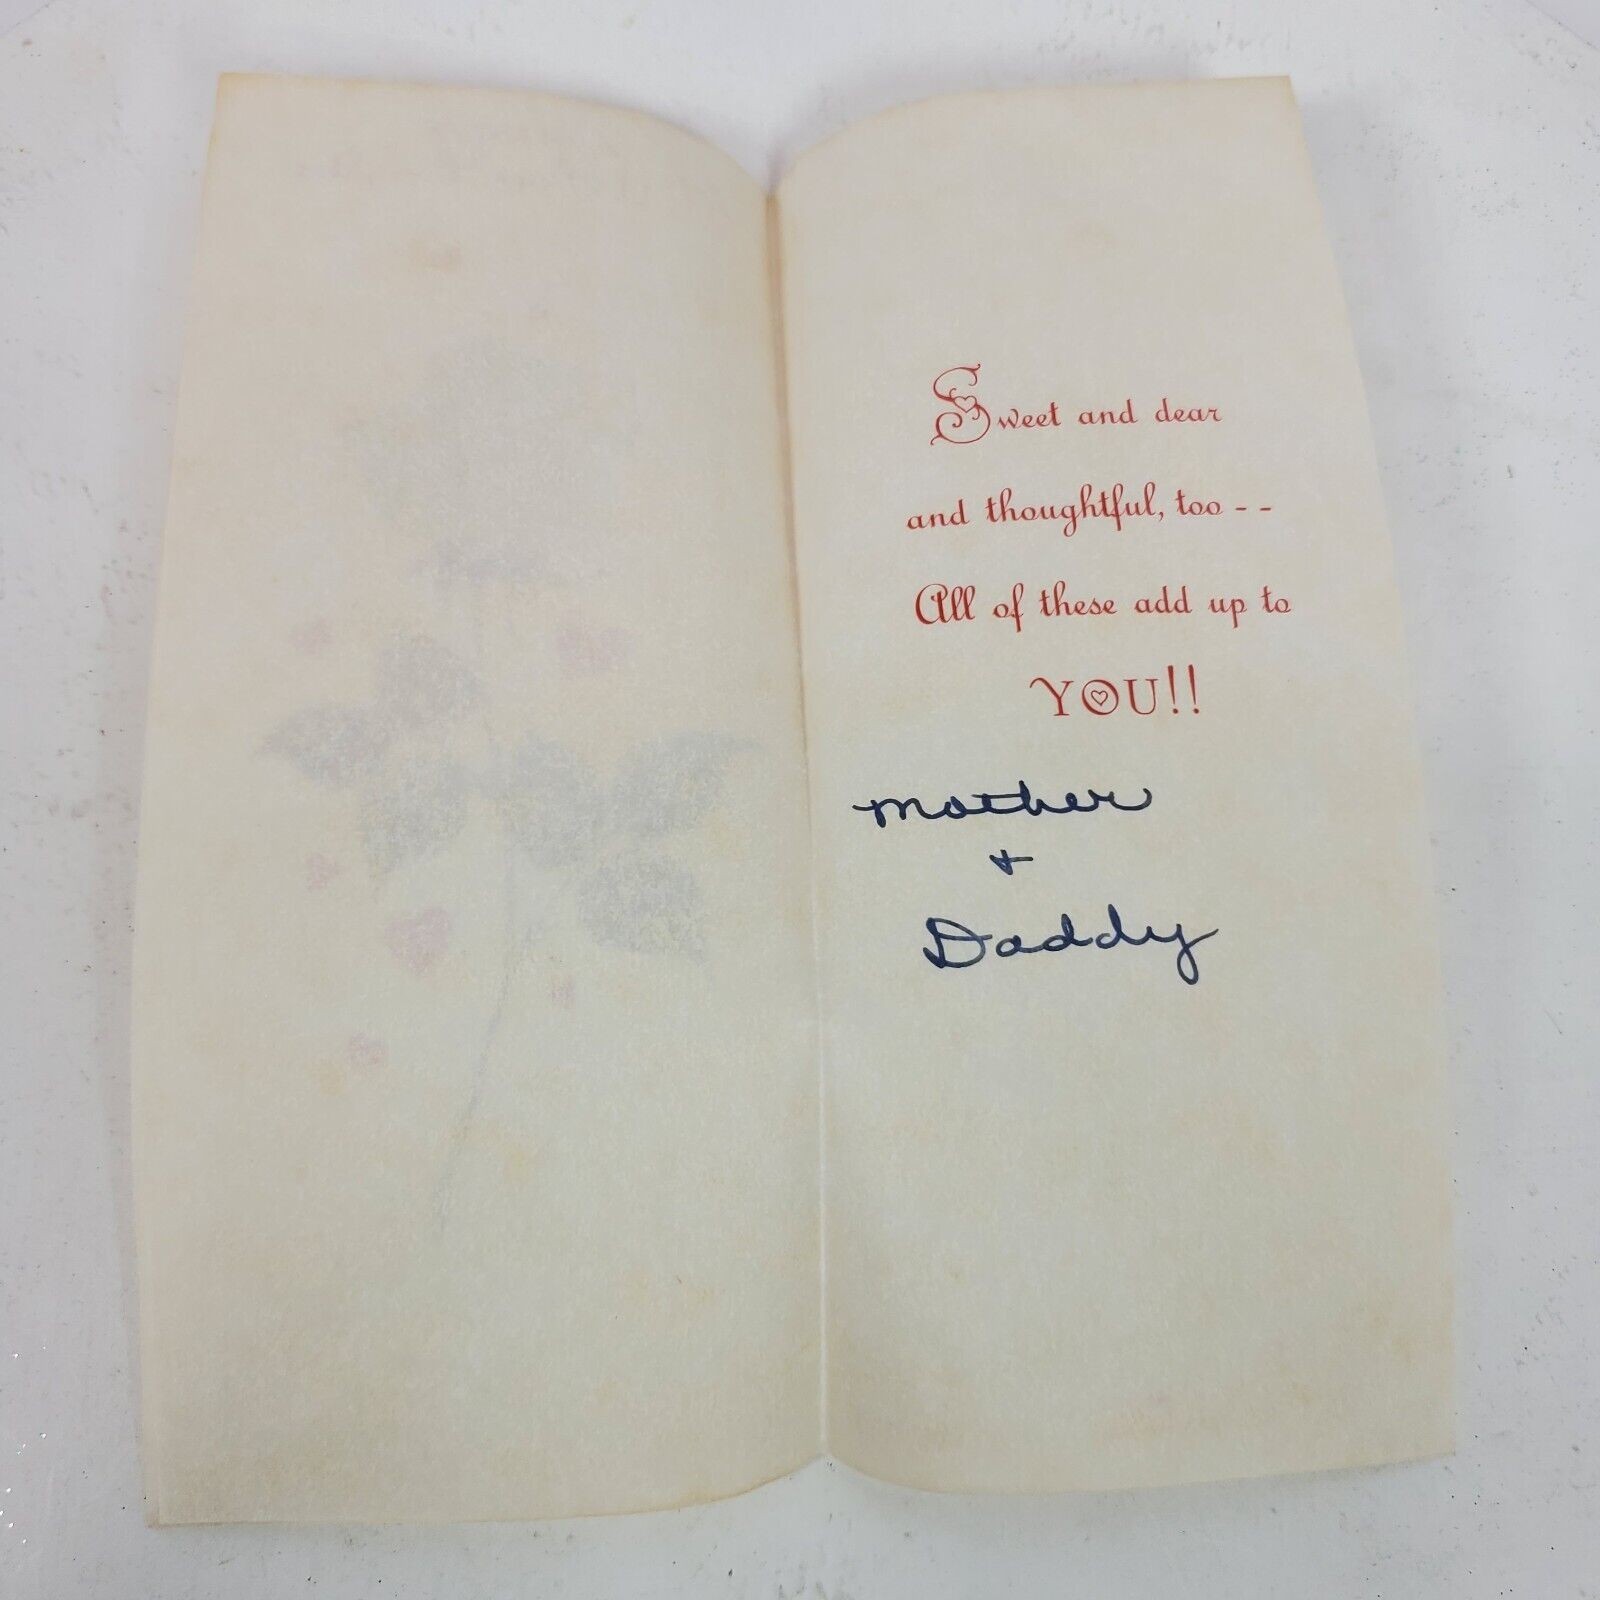 Sweet and dear
and thoughtful, too - -
All of these add up to
YOU!!
Mother
+
Daddy